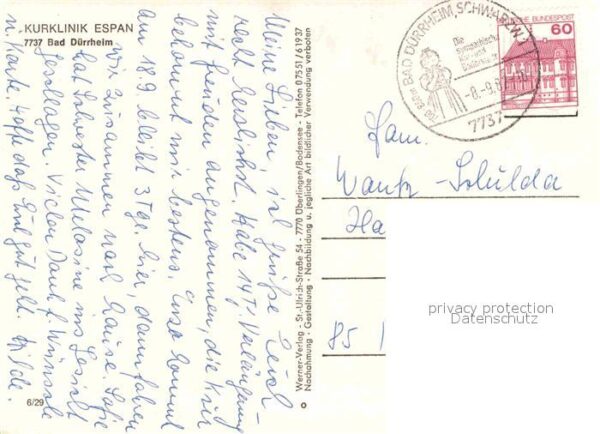 KURKLINIK ESPAN
7737 Bad Dürrheim
Meine Lieben, ich grüße Euch
recht herzlichst. Habe 14 T. Verlängerung
mit Freuden angenommen, die Kur
bekommt mir bestens. Enza kommt
am 18.9. bleibt 3 Tge. hier, dann fahren
wir zusammen nach Hause. Sofie
hat Schwester Melasine ins Gesicht
geschlagen. Vielen Dank f. Wünsche
u. Karte. Hoffe daß Euch gut geht. Hilde.
6/29
Werner-Verlag - St.-Ulrich-Straße 54 - 7770 Überlingen/Bodensee - Telefon 07551/61937
Nachahmung - Gestaltung - Nachbildung u. jegliche Art bildlicher Verwendung verboten
BAD DÜRRHEIM, SCHWARZW. 1
Die
-8.-9.8
7737
DEUTSCHE BUNDESPOST
60
Fam.
Ha
85 1
privacy protection
Datenschutz